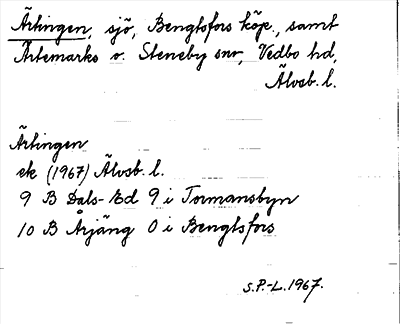 Ärtingen, sjö, Bengtsfors köp., samt
Ärtemarks o. Steneby snr, Vedbo hd,
Älvsb. l.
Ärtingen
ek (1967) Älvsb. l.
9 B Dals-Ed 9 i Tormansbyn
10 B Årjäng 0 i Bengtsfors
S.P.-L. 1967.